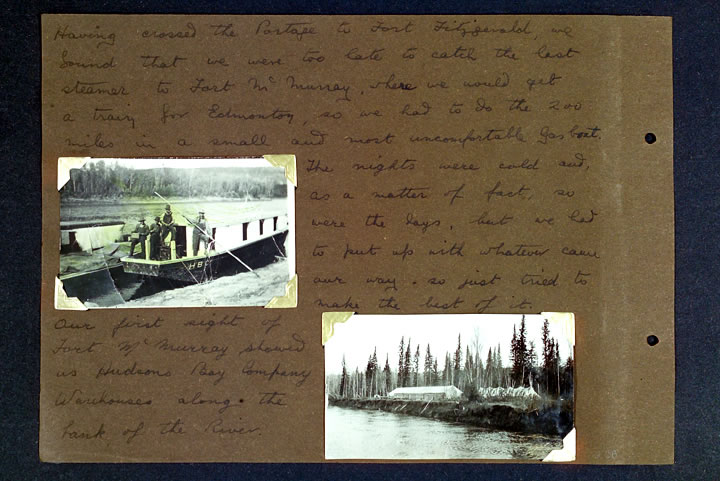 Having crossed the Portage to Fort Fitzgerald, we
found that we were too late to catch the last
steamer to Fort Mc Murray, where we would get
a train for Edmonton, so we had to do the 200
miles in a small and most uncomfortable gas boat.
The nights were cold and,
as a matter of fact, so
were the days, but we had
to put up with whatever came
our way. so just tried to
make the best of it.
HBC
Our first sight of
Fort Mc Murray showed
us Hudsons Bay Company
Warehouses along the
bank of the River.